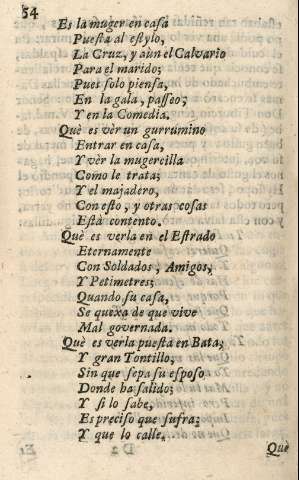 54
Es la muger en casa
Puesta al estylo,
La Cruz, y aùn el Calvario
Para el marido;
Pues solo piensa,
En la gala, passeo;
Y en la Comedia.
Què es vèr un gurrumino
Entrar en casa,
Y vèr la mugercilla
Como le trata;
Y el majadero,
Con esto, y otras cosas
Està contento.
Què es verla en el Estrado
Eternamente
Con Soldados, Amigos,
Y Petimetres;
Quando su casa,
Se quexa de que vive
Mal governada.
Què es verla puesta en Bata;
Y gran Tontillo,
Sin que sepa su esposo
Donde ha salido;
Y si lo sabe,
Es preciso que sufra;
Y que lo calle.
Què